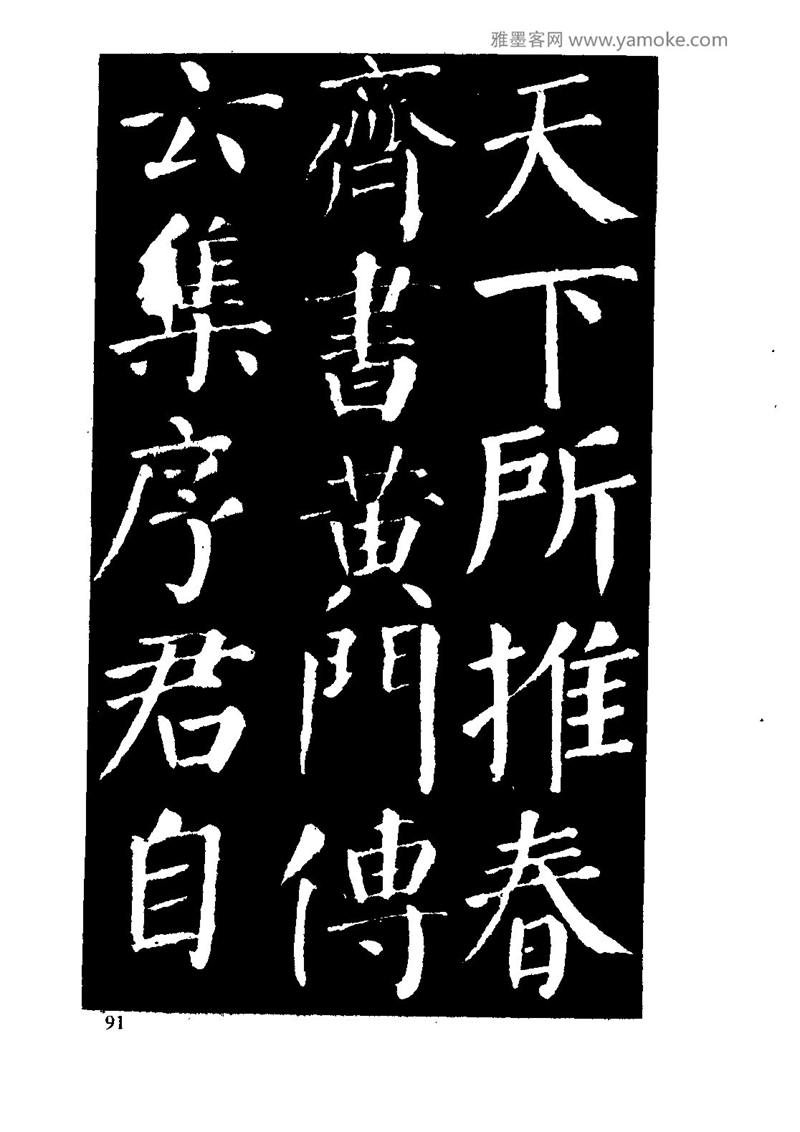 雅墨客网 www.yamoke.com
天下所推春
齊書黄門傳
云集序君自
91